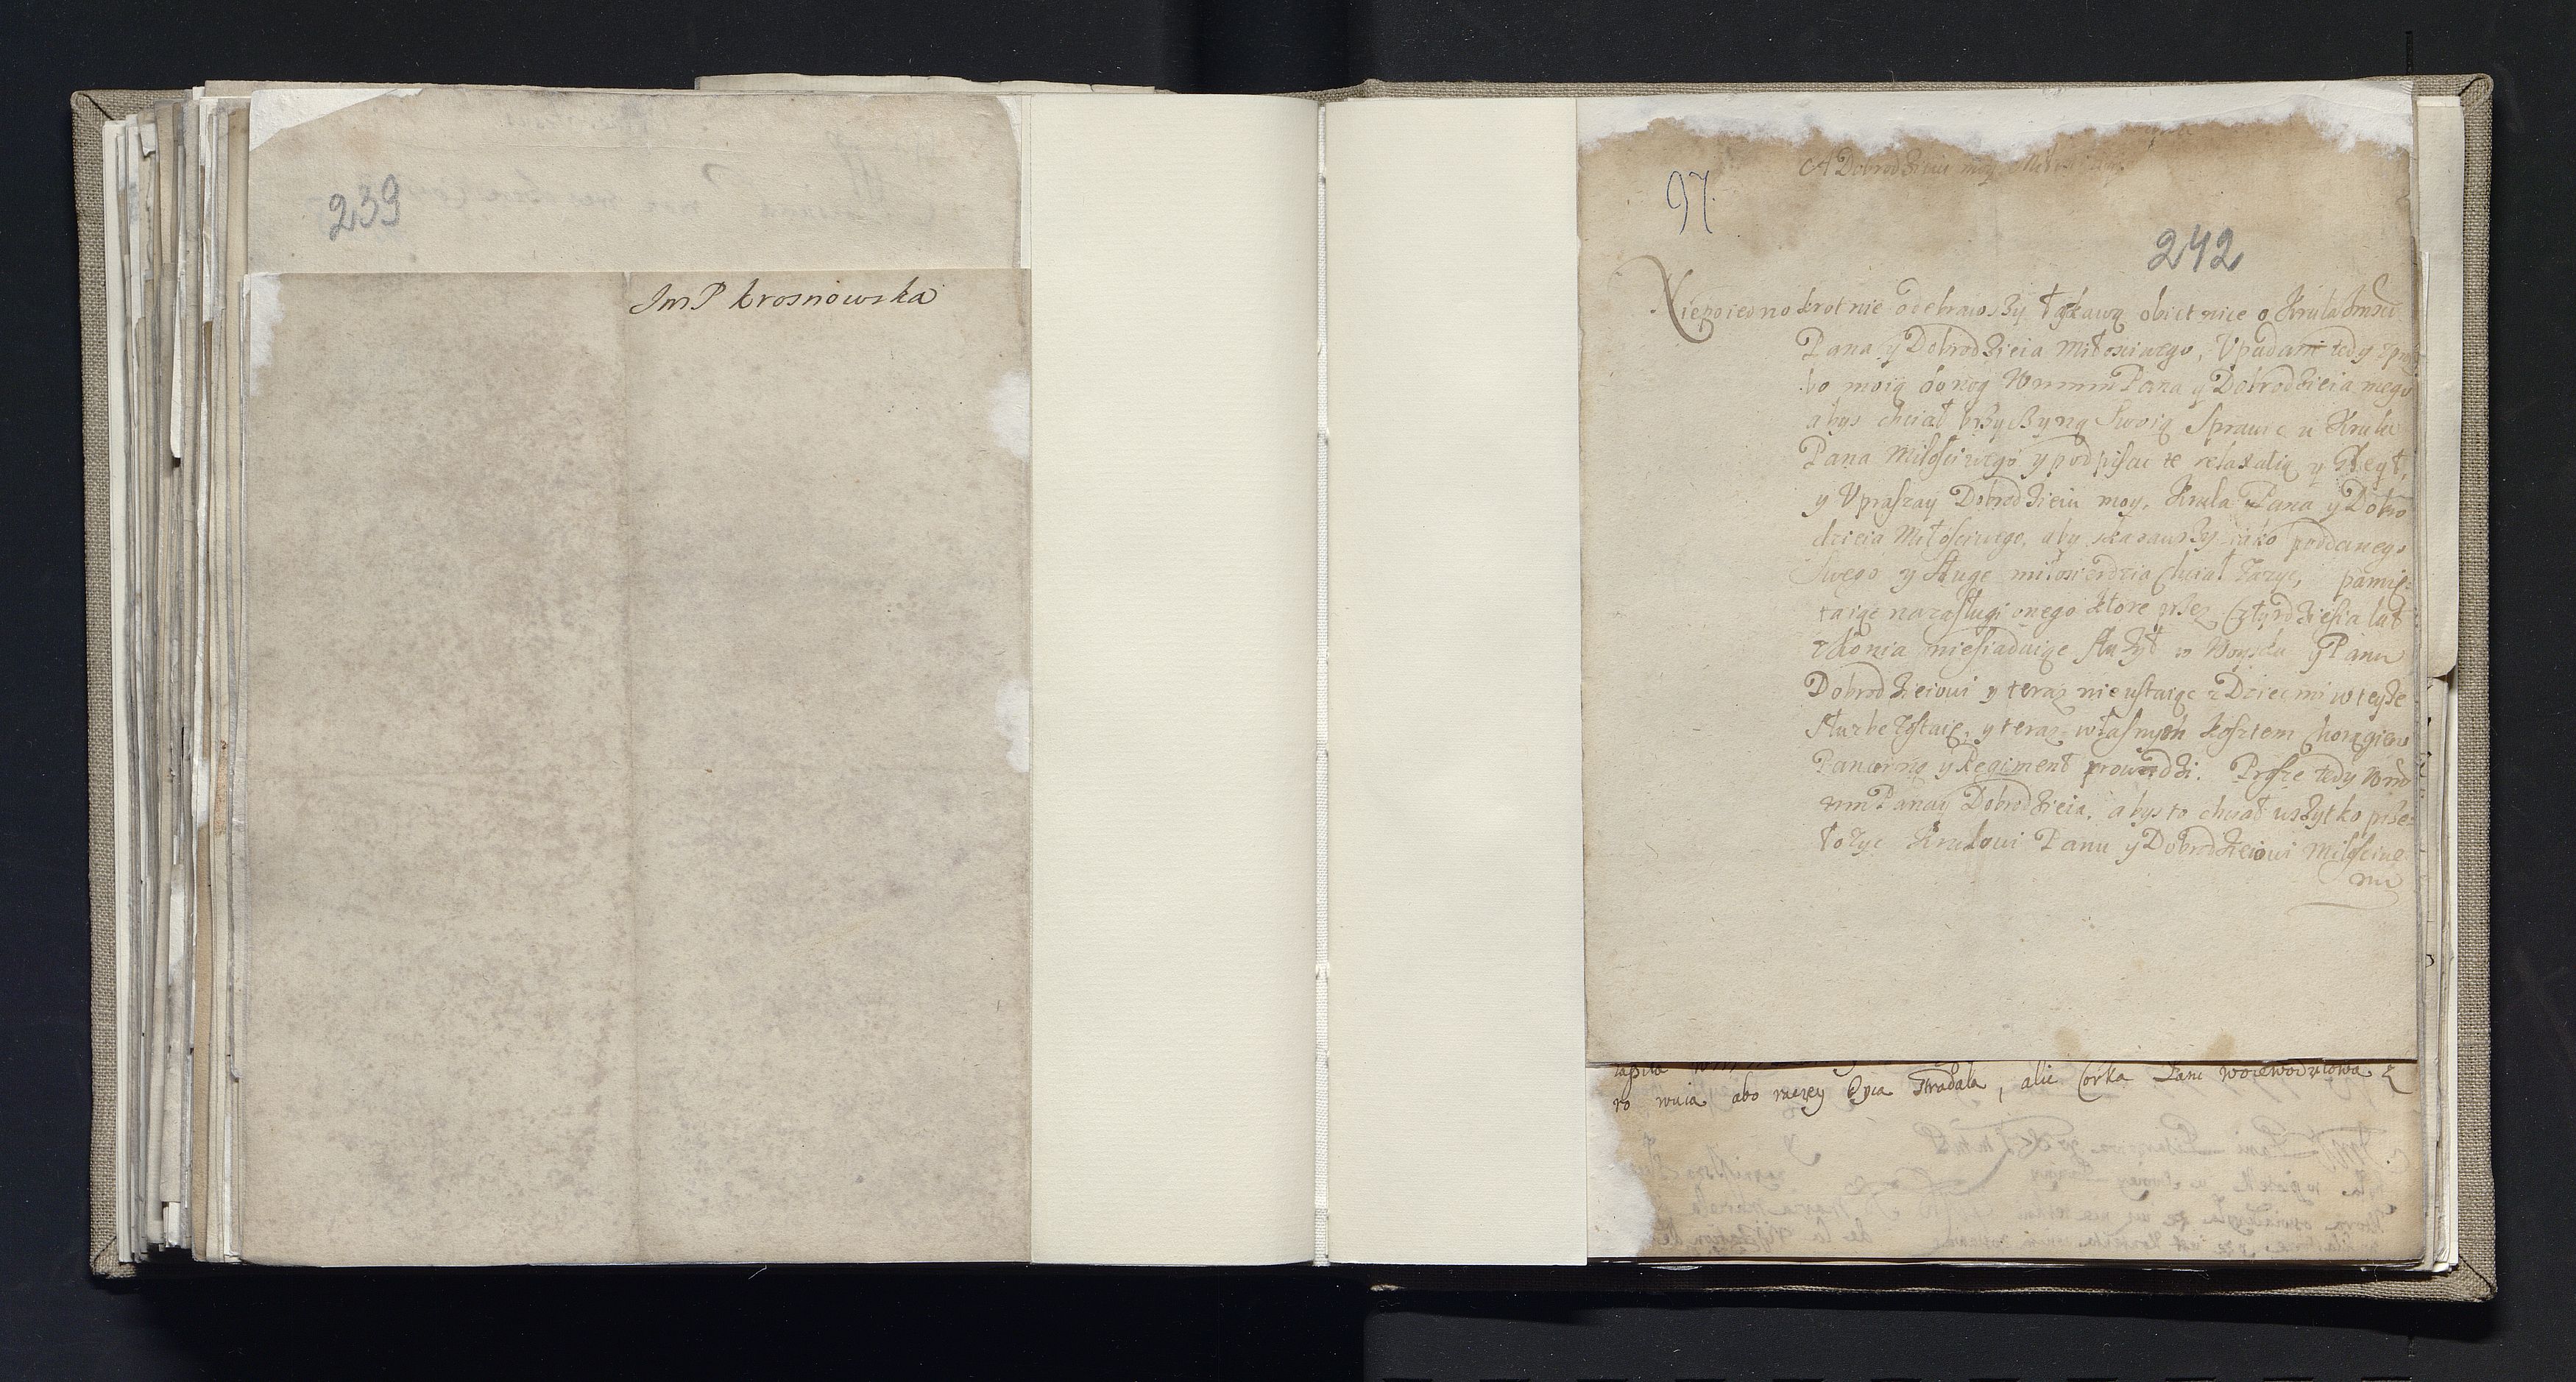 239
JmP krosnowska
A Dobrodzieiu moy
97
242
Niepoiednokrotnie odebrawszy łaskawą obietnice o Krula Jmści
Pana y Dobrodzieia Miłosciwego, Upadam tedy z proź
bo moią do nog Wmmm Pana y Dobrodzieia mego
abys chciał przyczyną Swoią Sprawic u Krula
Pana Miłosciwego y podpisac te relaxalią y Gleyt,
y Upraszay Dobrodzieiu moy, Krula Pana y Dobro
dzieia Miłosciwego, aby skazawszy iako poddanego
Swego y Sługe miłosierdzia chciał zazyc, pamię:
taiąc na zasługi onego ktore przez Cztyrdziesia lat
z konia niesiadaiąc służył w Woysku y Panu
Dobrodzieiowi y teraz nieustaiąc z Dziecmi w teyże
służbe zostaie, y teraz własnym kosztem chorągiew
Pancerną y Regiment prowadzi. Prosze tedy Wm
mm Pana y Dobrodzieia, abys to chciał wszytko prze:
łozyc Krulowi Panu y Dobrodzieiowi Milosciwe
mu
ro wuia abo raczey Oyca stradała, alic Corka Pani woiewodzicowa z